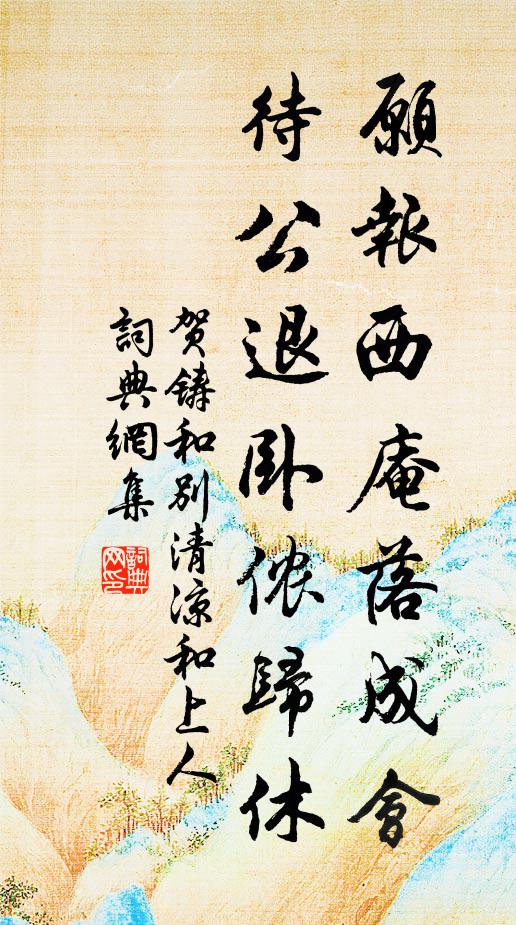 願報西庵落成會
待公退卧侬歸休
贺鑄和别清涼和上人
詞典網集
詞典網印